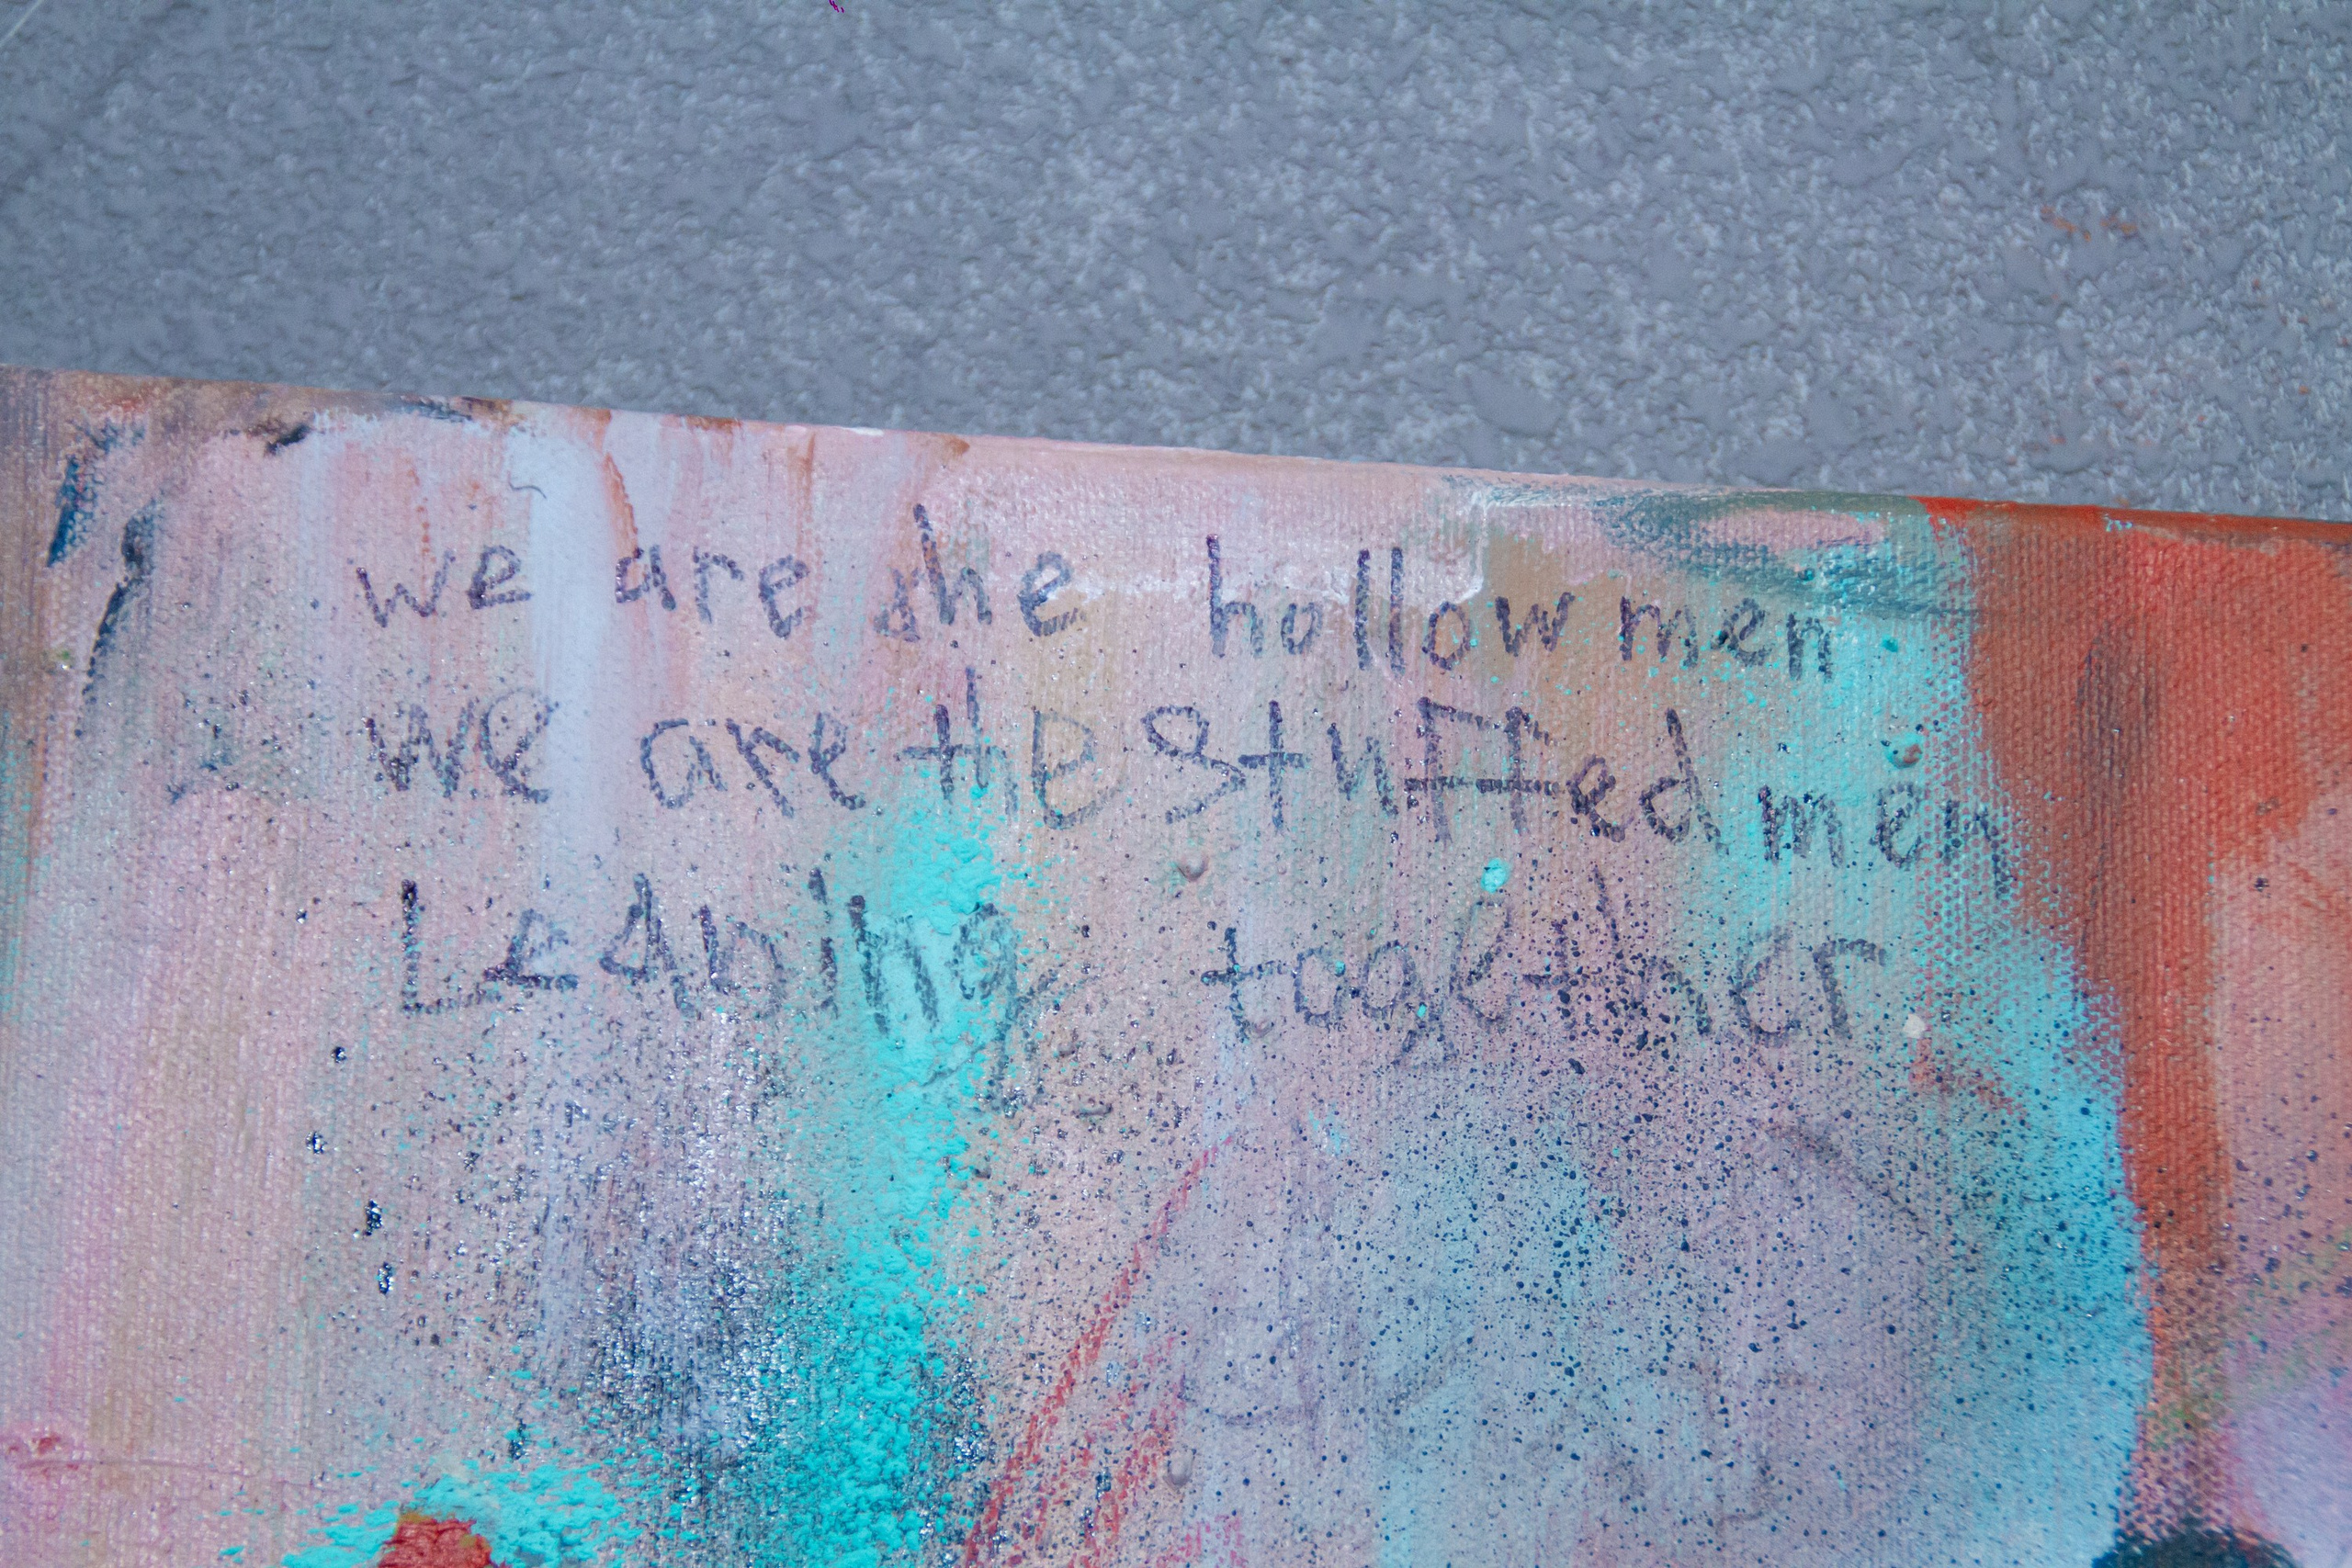 we are the hollow men
we are the stuffed men
Leaning together